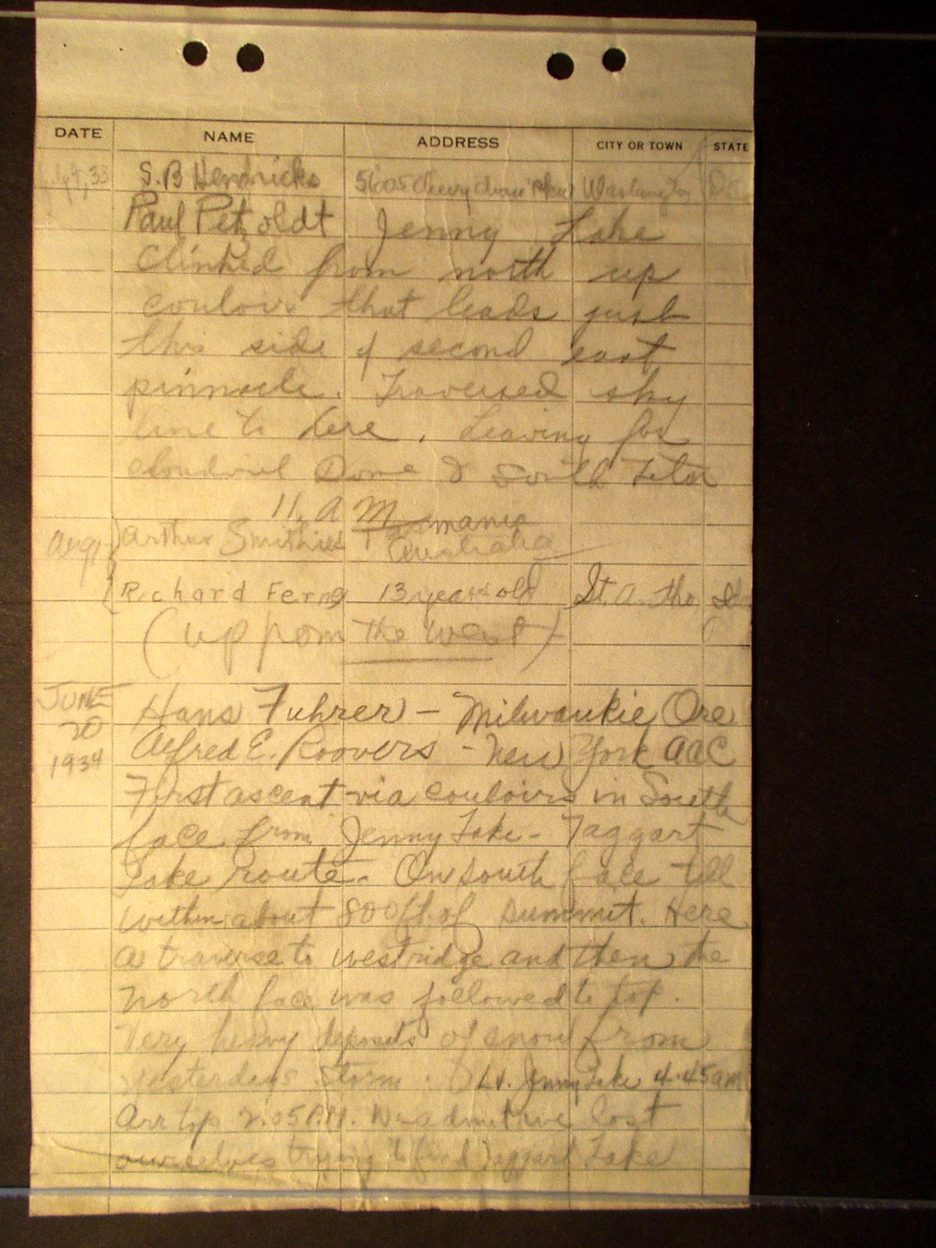 DATE NAME ADDRESS CITY OR TOWN STATE
S.B Hendricks 5605 Washington
Paul Petzoldt Jenny Lake
Climbed from north up
couloir that leads just
this side of second east
pinnacle. Traversed sky
line to here. Leaving for
Dome & South Teton
11. A M
Tasmania
Arthur Smithies Australia
Richard 13 years old St. Antho
(up from the west)
JUNE
20
1934
Hans Fuhrer - Milwaukie Ore
Alfred E. Roovers - New York AAC
First ascent via couloirs in South
face from Jenny Lake - Taggart
Lake route. On south face till
within about 800 ft. of summit. Here
a traverse to west ridge and then the
north face was followed to top.
Very heavy deposits of snow from
yesterdays storm. Lv. Jenny Lake 4.45 am
Arr top 2.05 P.M. We admit we lost
ourselves trying to find Taggart Lake